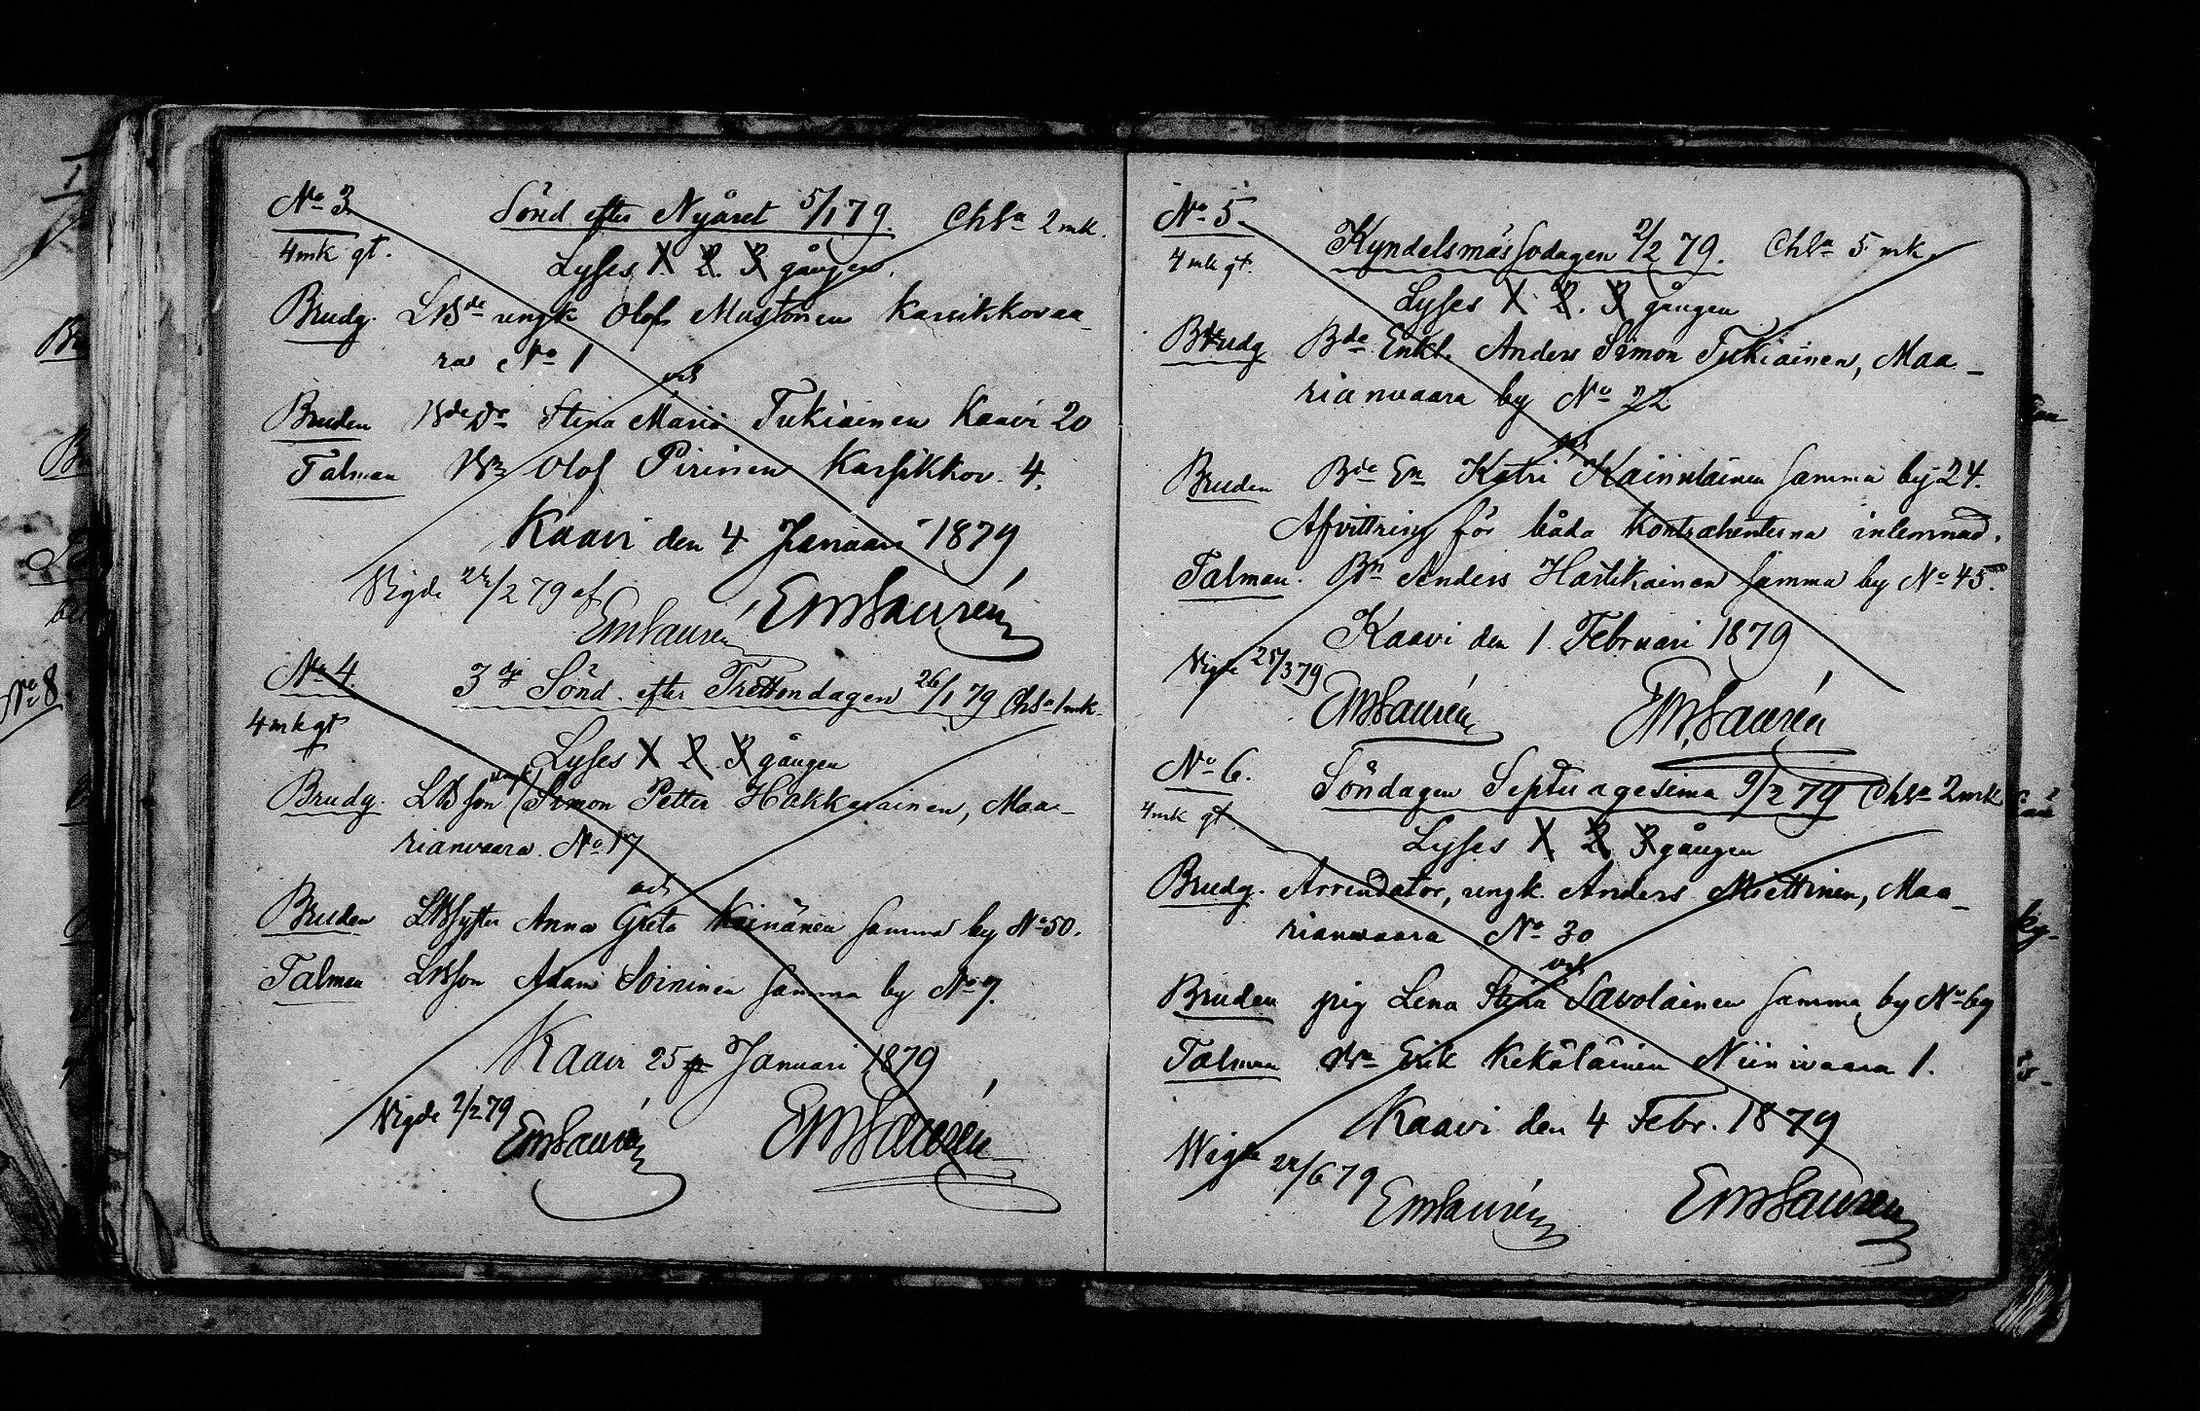 No 3.
Sönd efter Nyåret 5/1 79. Chla 2 mk.
4 mk gt.
Lyses 1. 2. 3 gången.
Brudg. LBde ungk Olof Mustonen Karsikkovaa-
ra No 1
och
Bruden Bde Dr Stina Maria Tukiainen Kaavi 20
Talman Bn Olof Pirinen Karsikkov. 4.
Kaavi den 4 Januari 1879
Vigde /2 79 af
EmLaurén EMLaurén
No 4.
3dje Sönd. efter Trettondagen 26/1 79 Chla 1 mk.
4 mk gt
Lyses 1 2. 3 gången
Brudg. LBson (ungk) Simon Petter Hakkarainen, Maa-
rianvaara. No 17
och
Bruden LBdytter Anna Greta Keinänen samma by No 50.
Talman LBson Adam Soininen samma by No 7.
Kaavi 25 Januari 1879
Vigde 2/2 79
EmLaurén EMLaurén
No 5.
Kyndelsmässodagen 2/2 79. Chla 5 mk.
4 mk gt.
Lyses 1. 2. 3 gången
Brudg Bde Enkl. Anders Simon Tukiainen, Maa-
rianvaara by No 22
och
Bruden Bde En Katri Kainulainen samma by 24.
Afvittring för båda kontrahenterna inlemnad.
Talman. Bn Anders Hartikainen samma by No 45.
Kaavi den 1. Februari 1879
Vigde 25/3 79
EMLaurén EM.Laurén
No 6.
Söndagen Septuagesima 9/2 79 Chla 2 mk
4 mk gt.
Lyses 1 2 3 gången
Brudg. Arrendator, ungk. Anders Miettinen, Maa-
rianvaara No 30
och
Bruden pig Lena Stina Savolainen samma by No 69
Talman Bn Erik Kekäläinen Niinivaara 1.
Kaavi den 4 Febr. 1879
Vigde /6 79
EmLaurén EMLaurén
No 8